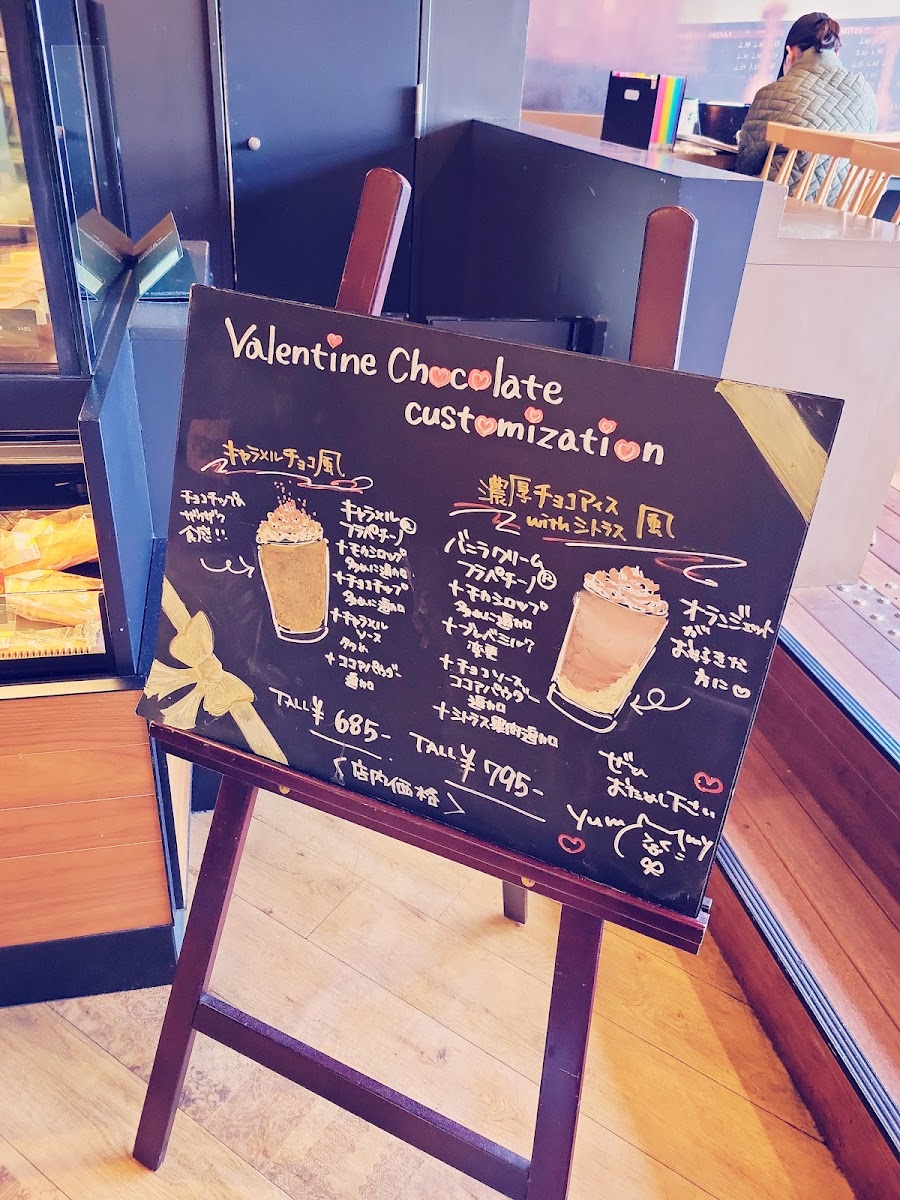 Valentine Chocolate
customization
キャラメルチョコ風
チョコチップの
ザクザク
食感!!
キャラメル
フラペチーノ®
+モカシロップ
多めに追加
+チョコチップ
多めに追加
+キャラメル
ソース
多め
+ココアパウダー
追加
TALL ¥685-
濃厚チョコアイス
with シトラス 風
バニラクリーム
フラペチーノ®
+モカシロップ
多めに追加
+ブレベミルク
変更
+チョコソース
ココアパウダー
追加
+シトラス果肉追加
オランジェット
が
お好きな
方に♡
TALL ¥795-
<店内価格>
ぜひ
おためし下さい
yummy